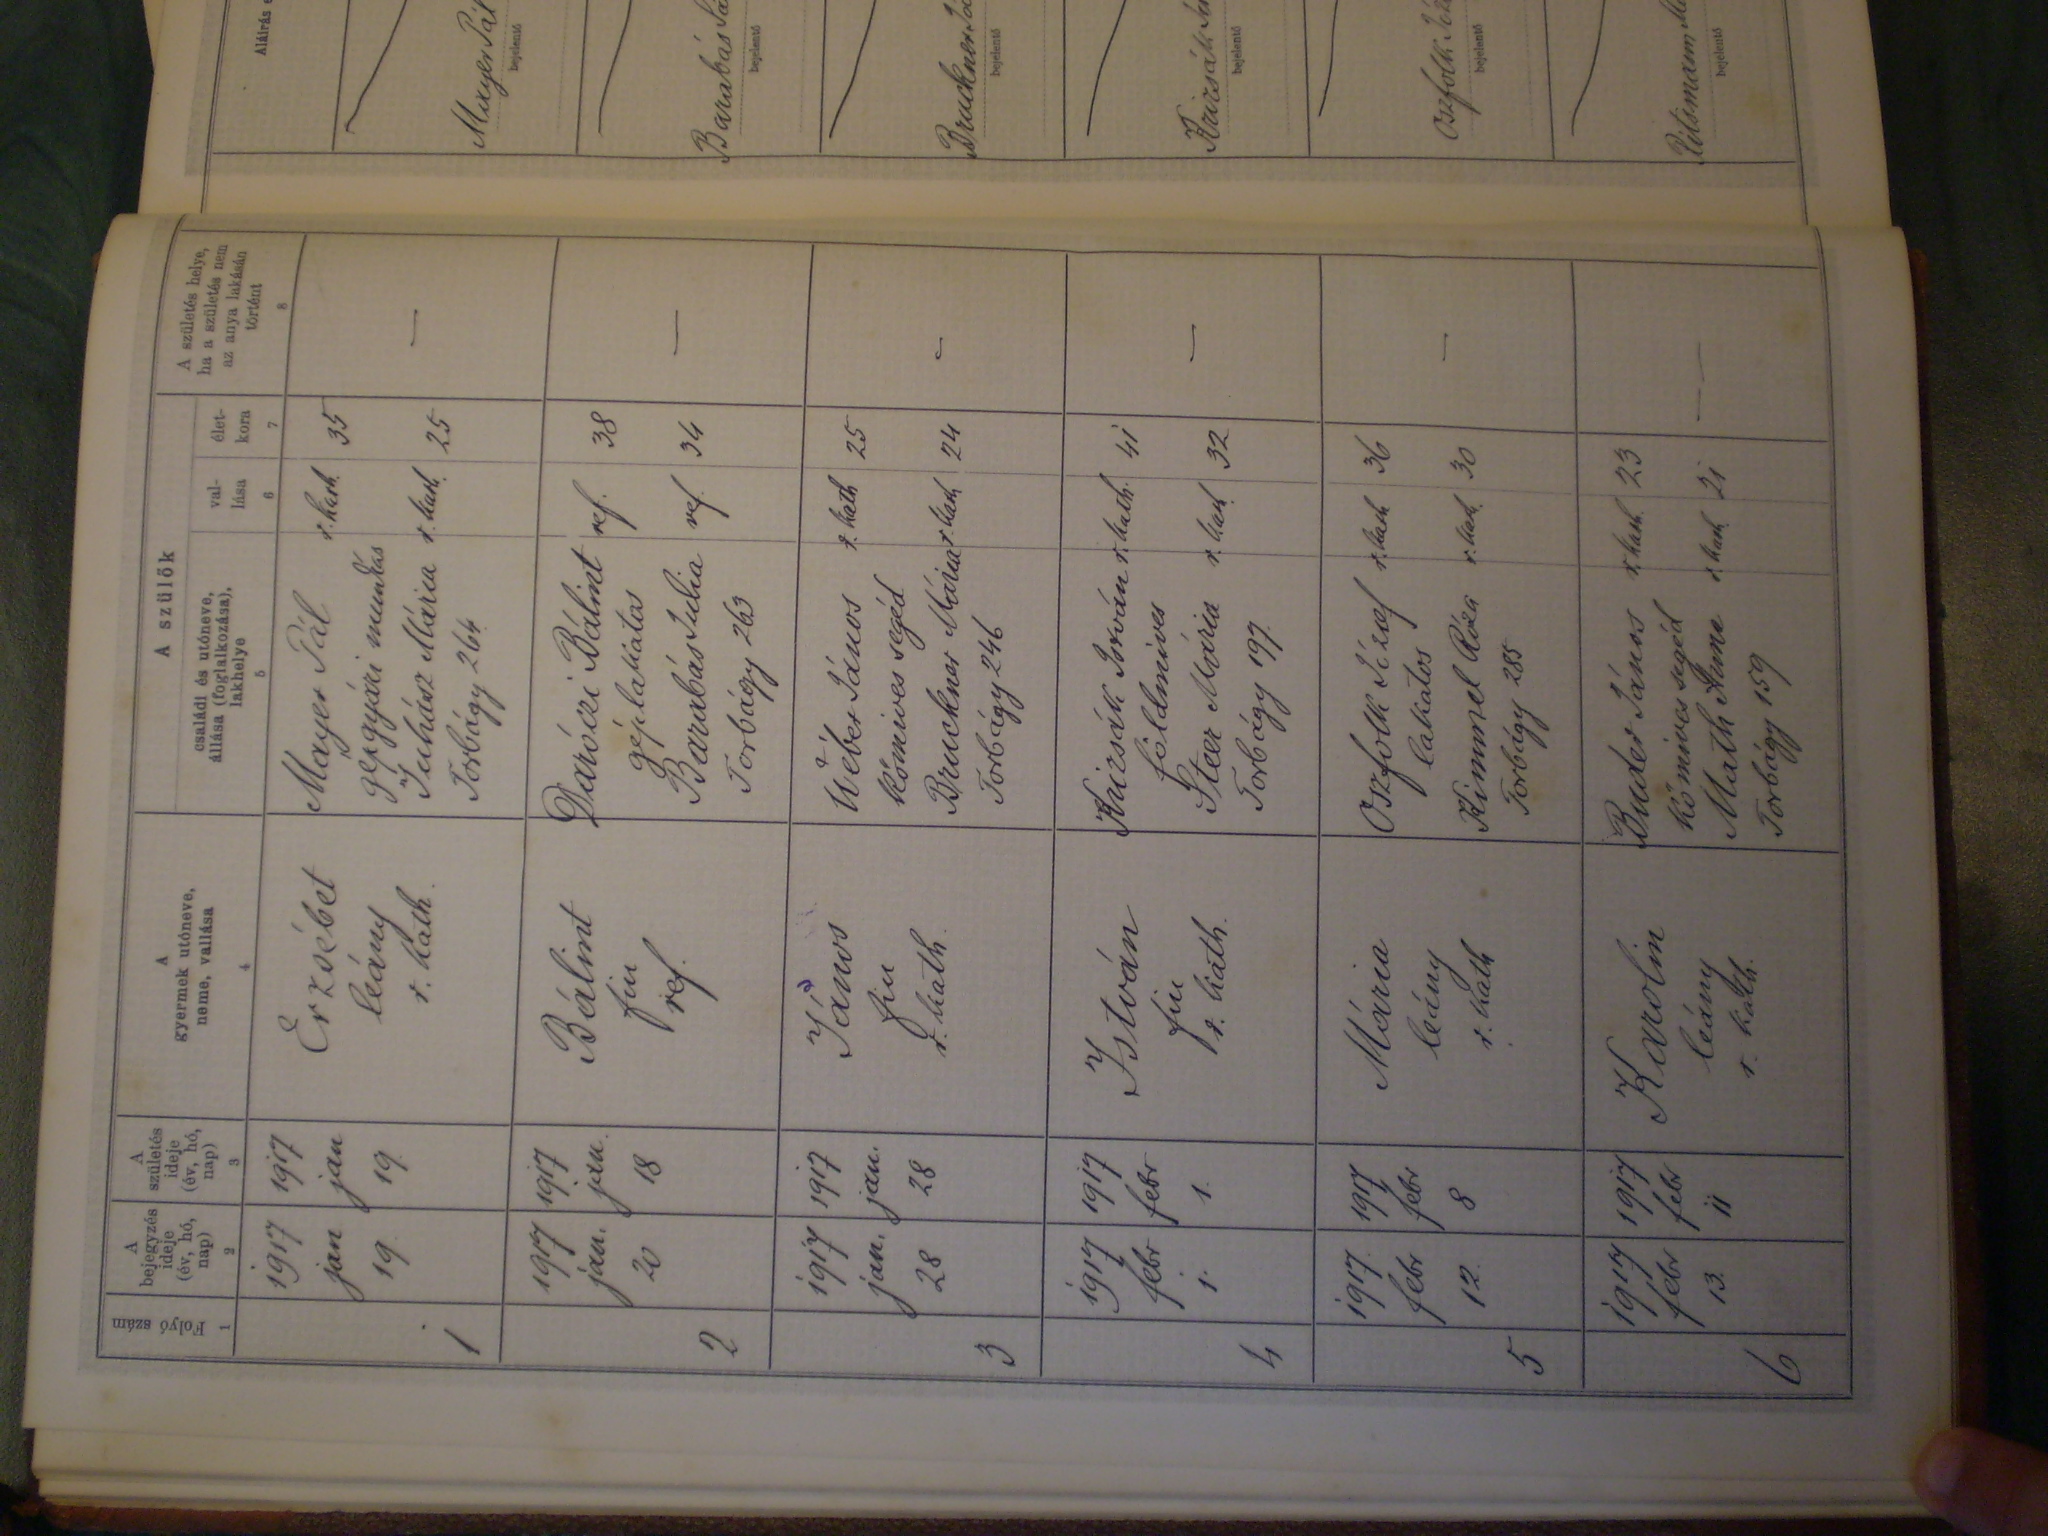 A szülők
Folyó szám
A bejegyzés ideje (év, hó, nap)
A születés ideje (év, hó, nap)
A gyermek utóneve, neme, vallása
családi és utóneve, állása (foglalkozása), lakhelye
val-lása
élet-kora
A születés helye, ha a születés nem az anya lakásán történt
1 2 3 4 5 6 7 8
1
1917 jan 19
1917 jan 19.
Erzsébet
leány
r. kath.
Mayer Pál r. kath. 35
gépgyári munkás
Juhász Mária r. kath. 25
Torbágy 264.
—
2
1917 jan. 20
1917 jan. 18
Bálint
fiu
ref.
Daróczi Bálint ref. 38
géplakatos
Barabás Julia ref. 34
Torbágy 263
—
3
1917 jan. 28
1917 jan. 28
János
fiu
r. kath.
Wéber János r. kath 25
kőmives segéd
Bruckner Mária r. kath 24
Torbágy 246
—
4
1917 febr 1.
1917 febr 1.
István
fiu
r. kath.
István r. kath. 41
földmives
Steer Mária r. kath. 32
Torbágy 197.
—
5
1917. febr 12.
1917 febr 8
Mária
leány
r. kath
Oszfolk József r. kath 36
lakatos
Kimmel Róza r. kath. 30
Torbágy 285
—
6
1917 febr 13.
1917 febr 11
Karolin
leány
r. kath.
Buder János r. kath. 23
kőmives segéd
Math Anna r. kath 21
Torbágy 159
—
Aláírás e
Mayer Pál
bejelentő
Barabás
bejelentő
Bruckner
bejelentő
bejelentő
Oszfolk
bejelentő
bejelentő